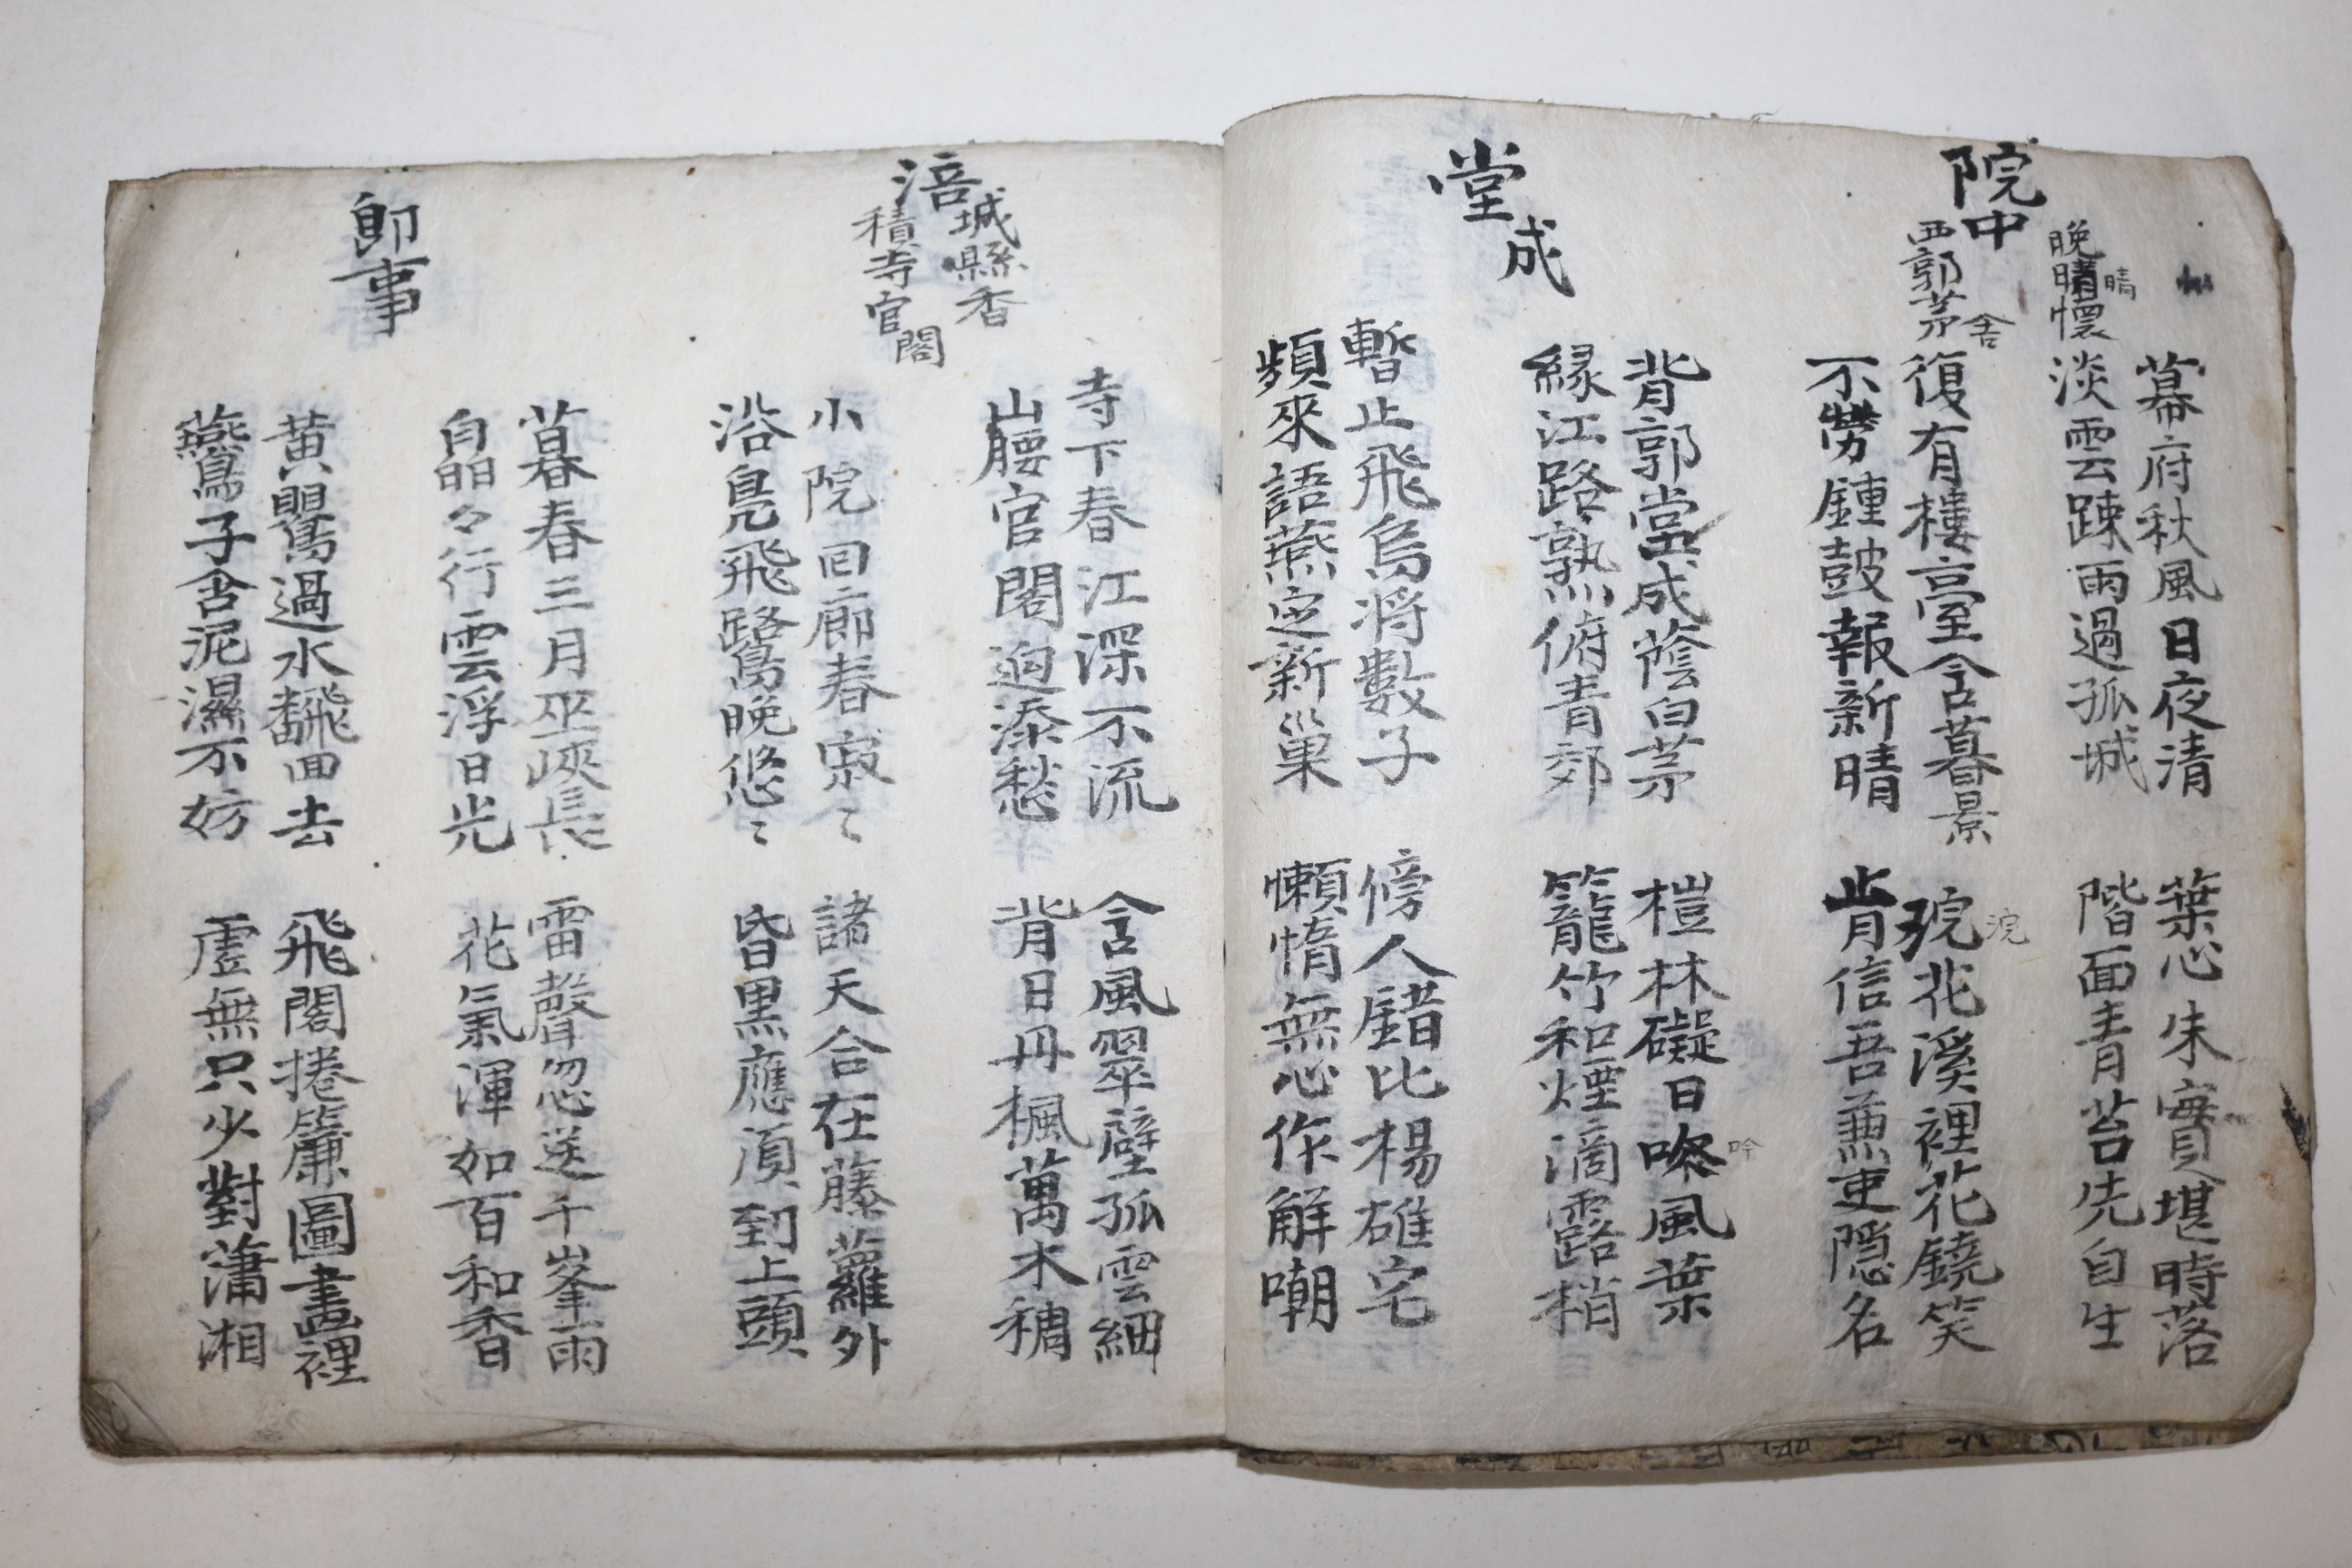 院中
晚晴懷
晴
西郭茅
舍
幕府秋風日夜清
葉心朱實堪時落
淡雲踈雨過孤城
階面青苔先自生
復有樓臺含暮景
花溪裡花鐃笑
浣
不勞鍾鼓報新晴
肯信吾兼吏隱名
堂成
背郭堂成蔭白茅
榿林礙日風葉
吟
緣江路熟俯青郊
籠竹和煙滴露梢
暫止飛烏將數子
傍人錯比楊雄宅
頻來語燕定新巢
懶惰無心作解嘲
涪
城縣香
積寺官
閣
寺下春江深不流
含風翠壁孤雲細
山腰官閣迥添愁
背日丹楓萬木稠
小院回廊春寂〻
諸天合在藤蘿外
沿鳧飛鷺晚悠〻
昏黒應須到上頭
即事
暮春三月巫峽長
雷聲忽送千峯雨
自皛々行雲浮日光
花氣渾如百和香
黄鸎過水飜回去
飛閣捲簾圖畫裡
鷰子含泥濕不妨
虛無只少對蕭湘